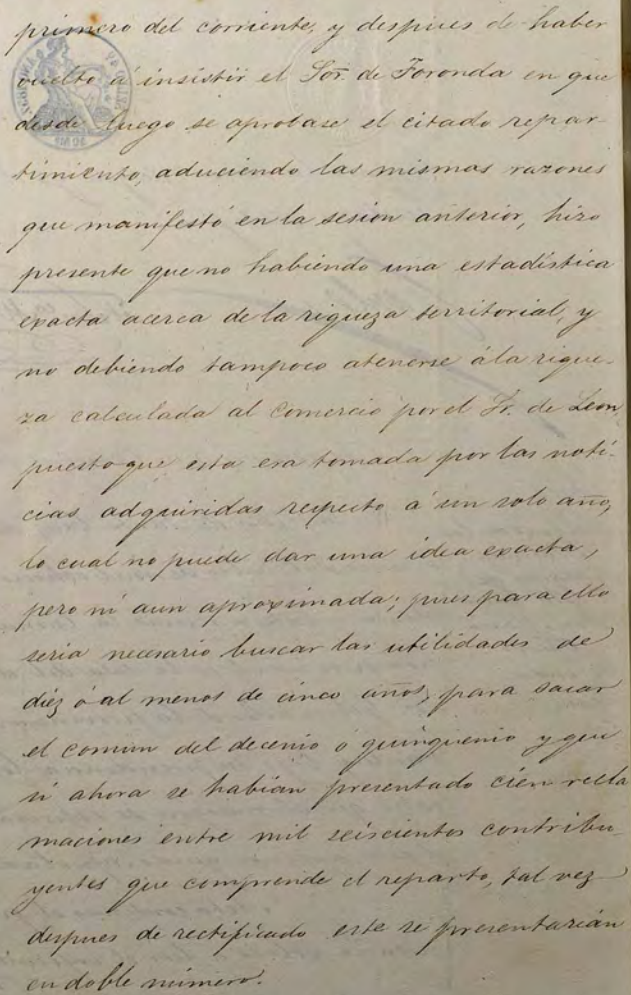 primero del corriente, y despues de haber
vuelto á insistir el Sor. de Foronda en que
desde luego se aprobase el citado repar-
timiento, aduciendo las mismas razones
que manifestó en la sesion anterior, hizo
presente que no habiendo una estadística
exacta acerca de la riqueza territorial, y
no debiendo tampoco atenerse á la rique-
za calculada al Comercio por el Sr. de Leon,
puesto que esta era tomada por las noti-
cias adquiridas respecto á un solo año,
lo cual no puede dar una idea exacta,
pero ni aun aproximada; pues para ello
seria necesario buscar las utilidades de
diez ó al menos de cinco años, para sacar
el comun del decenio ó quinquenio y que
si ahora se habian presentado cien recla
maciones entre mil seiscientos contribu-
yentes que comprende el reparto, tal vez
despues de rectificado este se presentarián
en doble número.